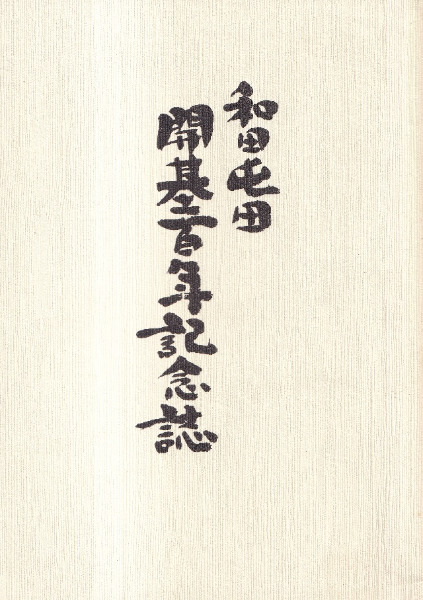 和田屯田
開基百年記念誌